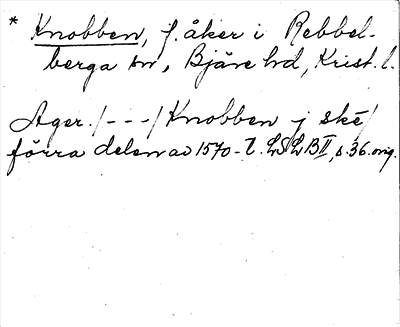 * Knobben, f. åker i Rebbel-
berga sn, Bjäre hd, Krist. l.
Ager. /---/ Knobben j ske/
förra delen av 1570-t. LSLBII, s. 36. orig.